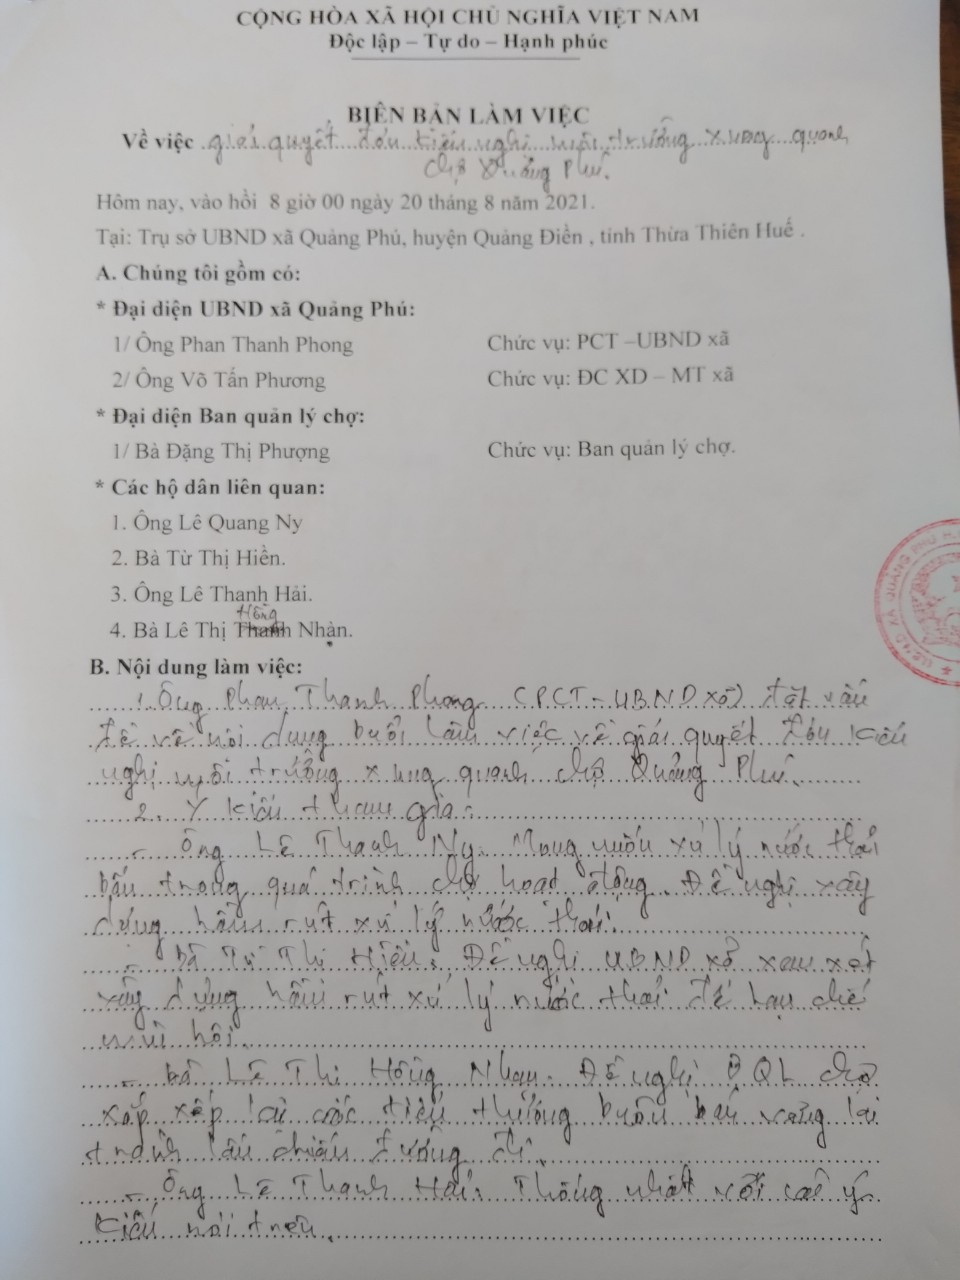 CỘNG HÒA XÃ HỘI CHỦ NGHĨA VIỆT NAM
Độc lập – Tự do – Hạnh phúc
BIÊN BẢN LÀM VIỆC
Về việc giải quyết đơn kiến nghị môi trường xung quanh
chợ Quảng Phú.
Hôm nay, vào hồi 8 giờ 00 ngày 20 tháng 8 năm 2021.
Tại: Trụ sở UBND xã Quảng Phú, huyện Quảng Điền , tỉnh Thừa Thiên Huế .
A. Chúng tôi gồm có:
* Đại diện UBND xã Quảng Phú:
1/ Ông Phan Thanh Phong Chức vụ: PCT –UBND xã
2/ Ông Võ Tấn Phương Chức vụ: ĐC XD – MT xã
* Đại diện Ban quản lý chợ:
1/ Bà Đặng Thị Phượng Chức vụ: Ban quản lý chợ.
* Các hộ dân liên quan:
1. Ông Lê Quang Ny
2. Bà Từ Thị Hiền.
3. Ông Lê Thanh Hải.
Hồng
4. Bà Lê Thị Thanh Nhạn.
B. Nội dung làm việc:
1. Ông Phan Thanh Phong (PCT - UBND xã) đặt vấn
đề về nội dung buổi làm việc về giải quyết đơn kiến
nghị môi trường xung quanh chợ Quảng Phú.
2. Ý kiến tham gia:
- Ông Lê Thanh Ny. Mong muốn xử lý nước thải
bẩn trong quá trình chợ hoạt động. Đề nghị xây
dựng hầm rút xử lý nước thải.
- Bà Từ Thị Hiền. Đề nghị UBND xã xem xét
xây dựng hầm rút xử lý nước thải để hạn chế
mùi hôi.
- Bà Lê Thị Hồng Nhạn. Đề nghị BQL chợ
sắp xếp lại các tiểu thương buôn bán
tránh lấn chiếm đường đi.
- Ông Lê Thanh Hải. Thống nhất với các ý
kiến nói trên.
U.B.N.D XÃ QUẢNG PHÚ H.